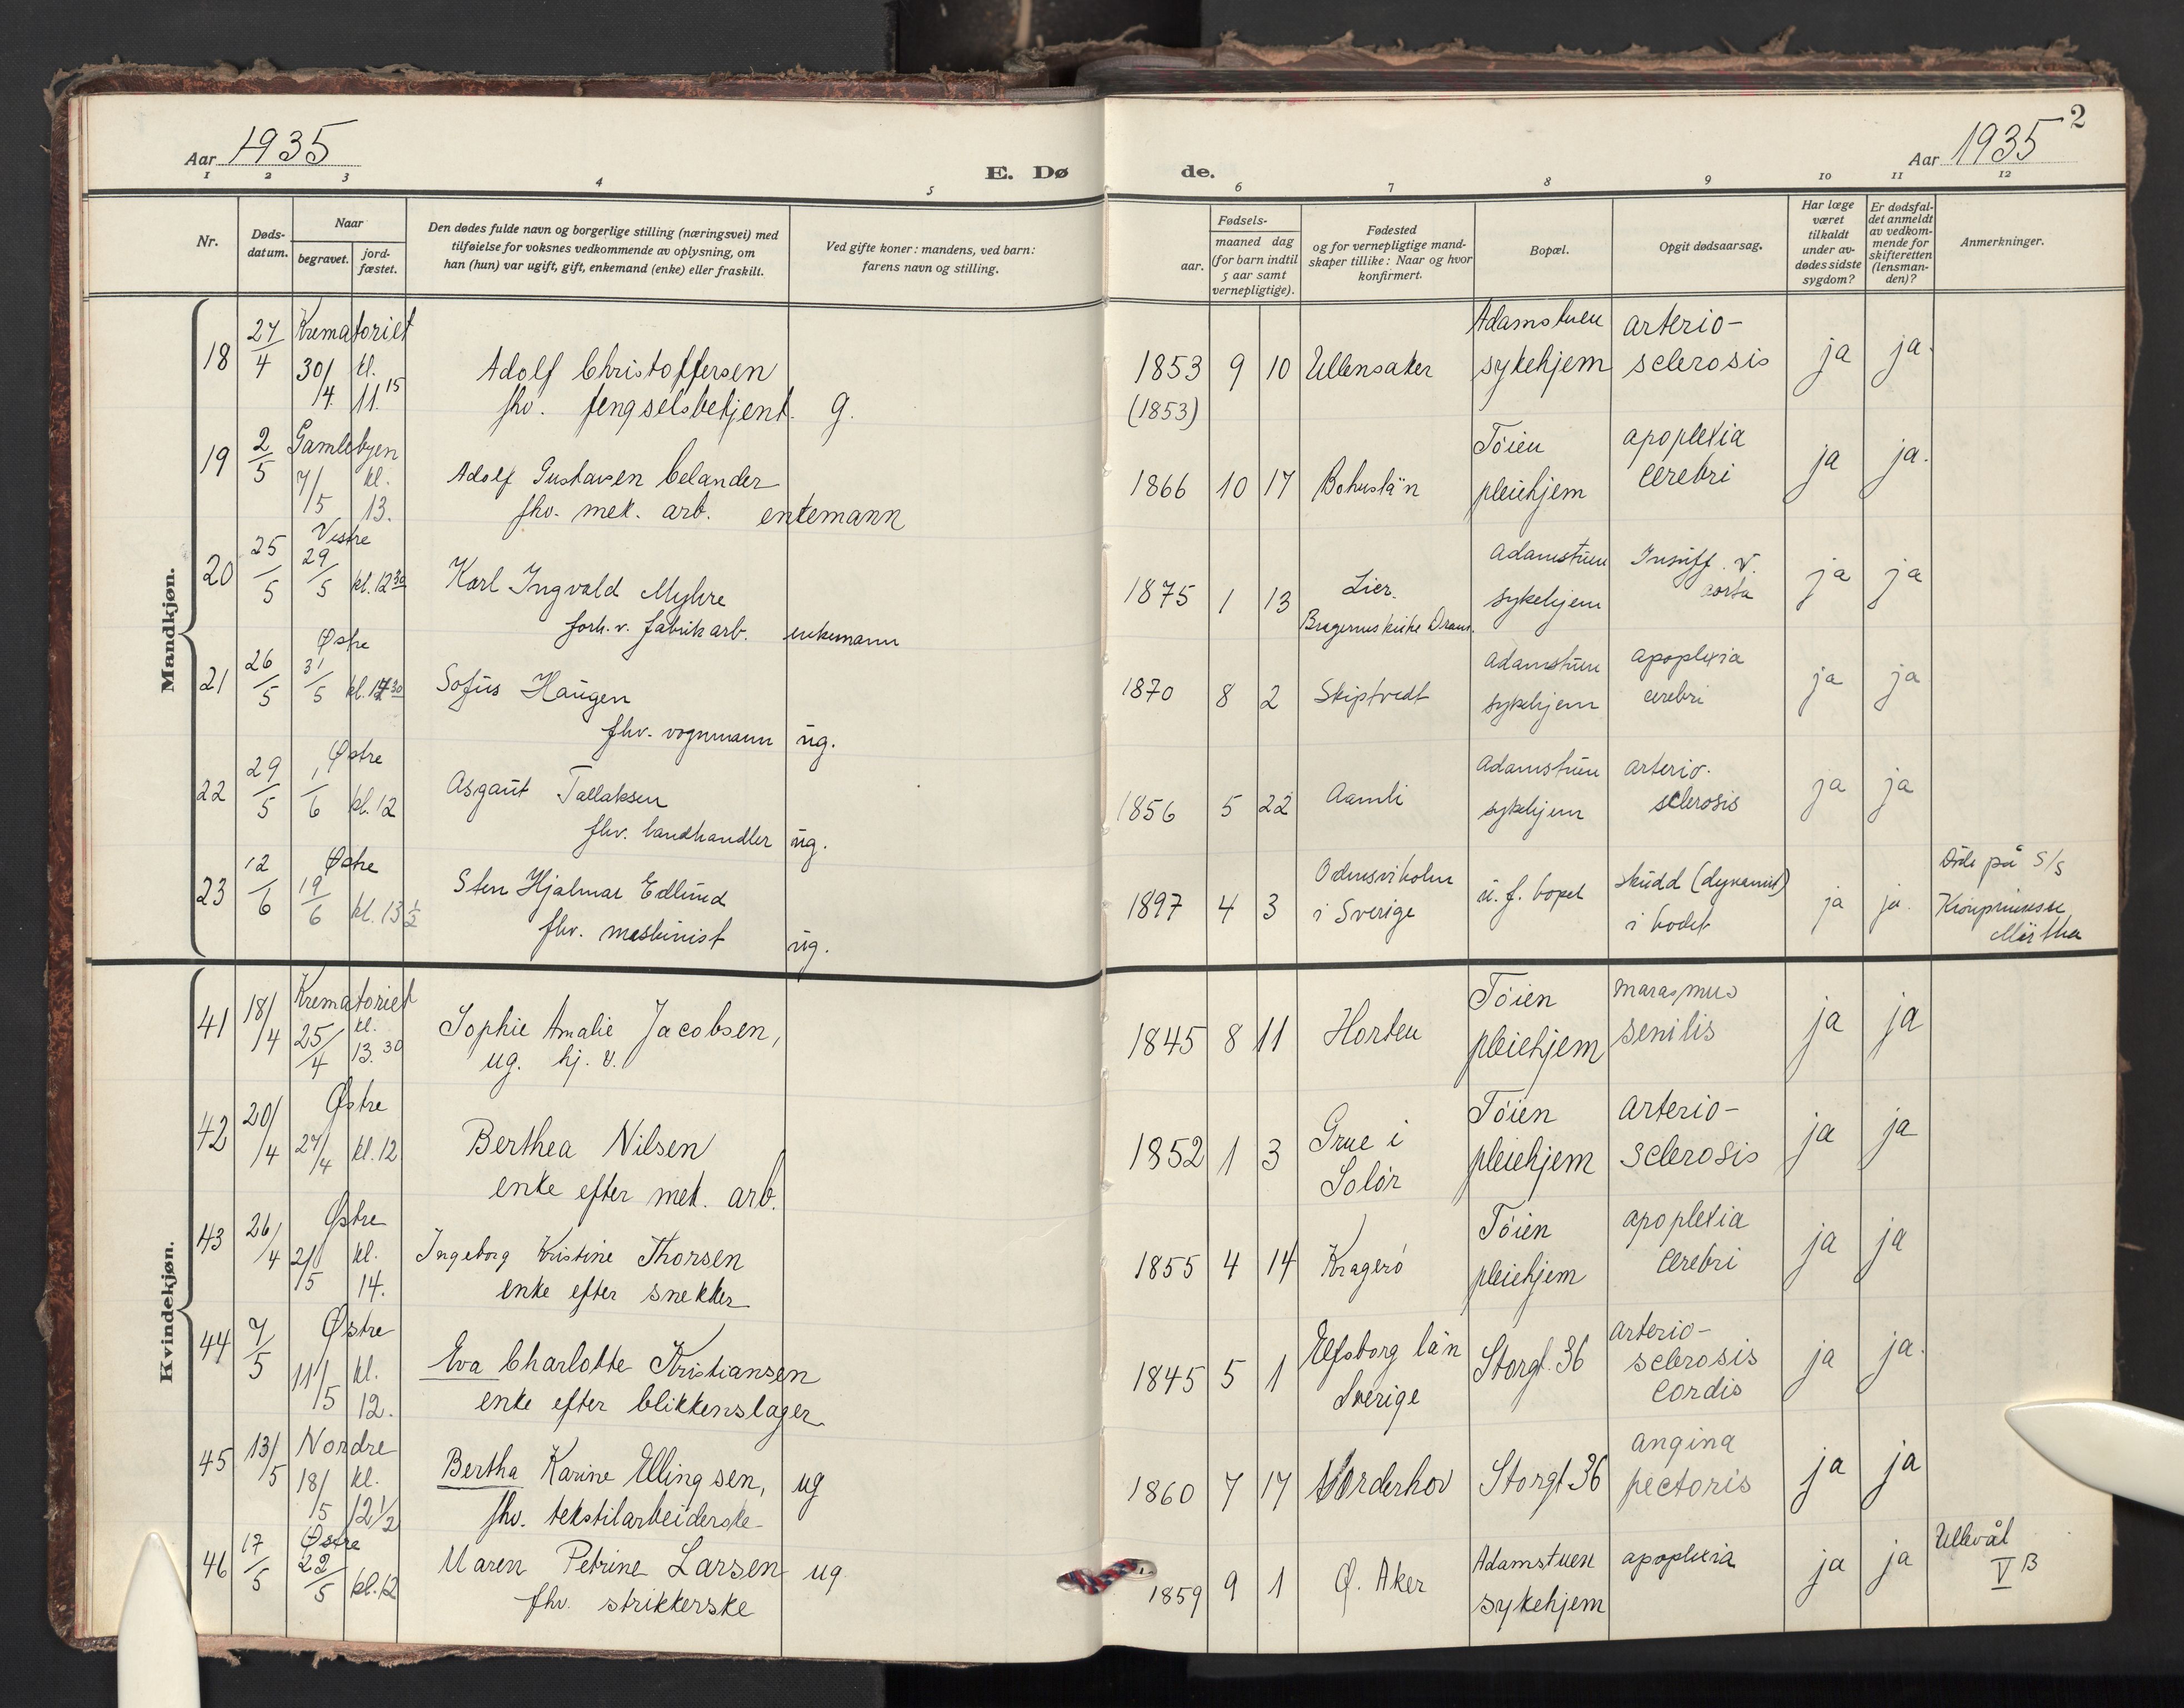 2
Aar 1935
Aar 1935
E. Dø
de.
1 2 3 4 5 6 7 8 9 10 11 12
Nr.
Døds-
datum.
Naar
begravet.
jord-
fæstet.
Den dødes fulde navn og borgerlige stilling (næringsvei) med
tilføielse for voksnes vedkommende av oplysning, om
han (hun) var ugift, gift, enkemand (enke) eller fraskilt.
Ved gifte koner: mandens, ved barn:
farens navn og stilling.
Fødsels-
aar.
maaned dag
(for barn indtil
5 aar samt
vernepligtige).
Fødested
og for vernepligtige mand-
skaper tillike: Naar og hvor
konfirmert.
Bopæl.
Opgit dødsaarsag.
Har læge
været
tilkaldt
under av-
dødes sidste
sygdom?
Er dødsfal-
det anmeldt
av vedkom-
mende for
skifteretten
(lensman-
den)?
Anmerkninger.
Mandkjøn.
18 27/4 Krematoriet 30/4 kl. 11.15
Adolf Christoffersen
fhv. fengselsbetjent. g.
1853 9 10 Ullensaker Adamstuen sykehjem arterio- sclerosis ja ja.
(1853)
19 2/5 Gamlebyen 7/5 kl. 13.
Adolf Gustavsen Celander
fhv. mek. arb. enkemann
1866 10 17 Bohuslän Töien pleiehjem apoplexia cerebri ja ja.
20 25/5 Vestre 29/5 kl. 12 30
Karl Ingvald Myhre
forh.v. fabrikarb. enkemann
1875 1 13 Lier. Bragernes kirke Dram. Adamstuen sykehjem Insuff. v. aorta ja ja
21 26/5 Østre 31/5 kl.
Sofus Haugen
fhv. vognmann ug.
1870 8 2 Skiptvedt Adamstuen sykehjem apoplexia cerebri ja ja
22 29/5 Østre 1/6 kl. 12
Asgaut Tallaksen
fhv. landhandler ug.
1856 5 22 Aamli Adamstuen sykehjem arterio- sclerosis ja ja
23 12/6 Østre 19/6 kl. 13 1/2
Sten Hjalmar Edlund
fhv. maskinist ug.
1897 4 3 i Sverige u. f. bopel skudd (dynamit) i hodet ja ja.
Døde på S/S
Kronprinsesse
Märtha
Kvindekjøn.
41 18/4 Krematoriet 25/4 kl. 13.30
Sophie Amalie Jacobsen,
ug. hj. v.
1845 8 11 Horten Töien pleiehjem marasmus senilis ja ja
42 20/4 Østre 27/4 kl. 12
Berthea Nilsen
enke efter mek. arb.
1852 1 3 Grue i Solör Töien pleiehjem arterio- sclerosis ja ja
43 26/4 Østre 2/5 kl. 14.
Ingeborg Kristine Thorsen
enke efter snekker
1855 4 14 Kragerö Töien pleiehjem apoplexia cerebri ja ja
44 7/5 Østre 11/5 kl. 12.
Eva Charlotte Kristiansen
enke efter blikkenslager
1845 5 1 Elfsborg län Sverige Storgt. 36 arterio- sclerosis cordis ja ja.
45 13/5 Nordre 18/5 kl. 12 1/2
Bertha Karine Ellingsen, ug
fhv. tekstilarbeiderske
1860 7 17 Norderhov Storgt 36 angina pectoris ja ja
46 17/5 Østre 22/5 kl. 12
Maren Petrine Larsen ug
fhv. strikkerske
1859 9 1 Ø. Aker Adamstuen sykehjem apoplexia ja ja
Ullevål
V B